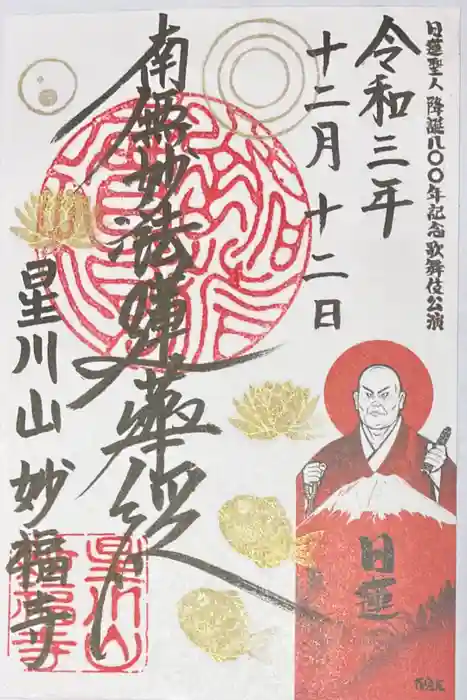 日蓮聖人降誕八〇〇年記念歌舞伎公演
令和三年
十二月十二日
南無妙法蓮華経
星川山妙福寺
日蓮
星川山
妙福寺